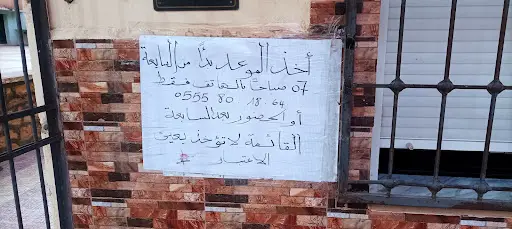 أخذ الموعد بدءًا من السابعة
07 صباحًا بالهاتف فقط
0555 80 18 64
أو الحضور بعد السابعة
القائمة لا تؤخذ بعين
الاعتبار